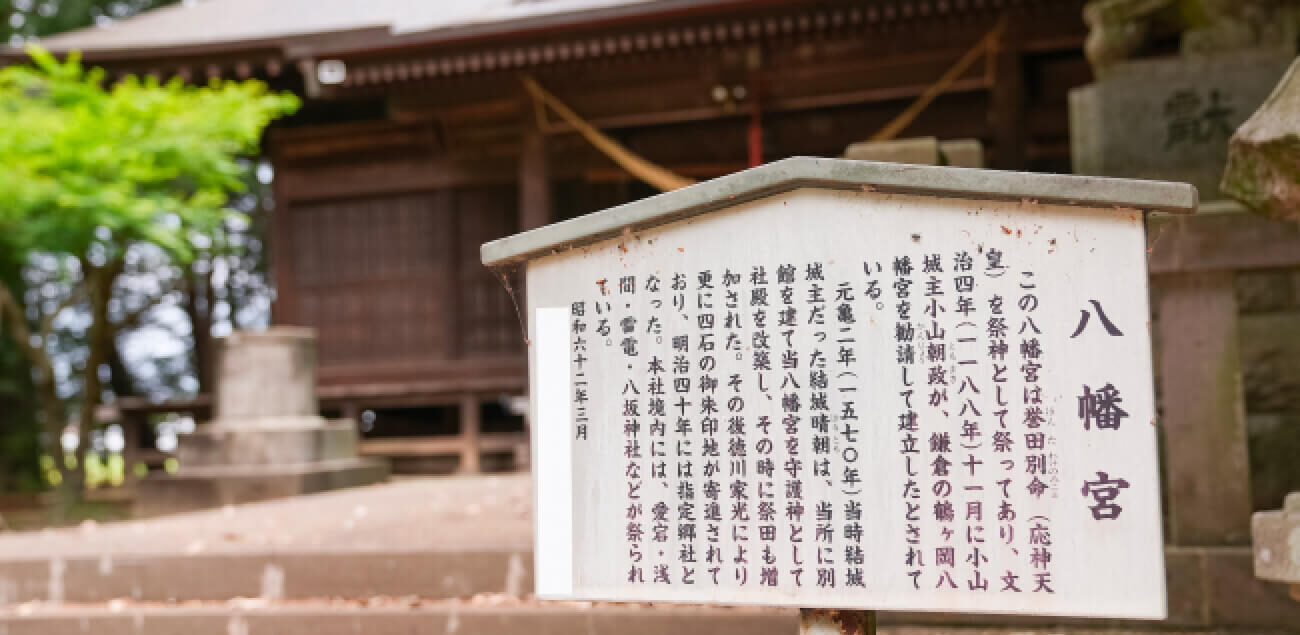 八幡宮
この八幡宮は誉田別命（応神天
皇）を祭神として祭ってあり、文
治四年（一一八八年）十一月に小山
城主小山朝政が、鎌倉の鶴ヶ岡八
幡宮を勧請して建立したとされて
いる。
元亀二年（一五七〇年）当時結城
城主だった結城晴朝は、当所に別
館を建て当八幡宮を守護神として
社殿を改築し、その時に祭田も増
加された。その後徳川家光により
更に四石の御朱印地が寄進されて
おり、明治四十年には指定郷社と
なった。本社境内には、愛宕・浅
間・雷電・八坂神社などが祭られ
ている。
昭和六十二年三月
献